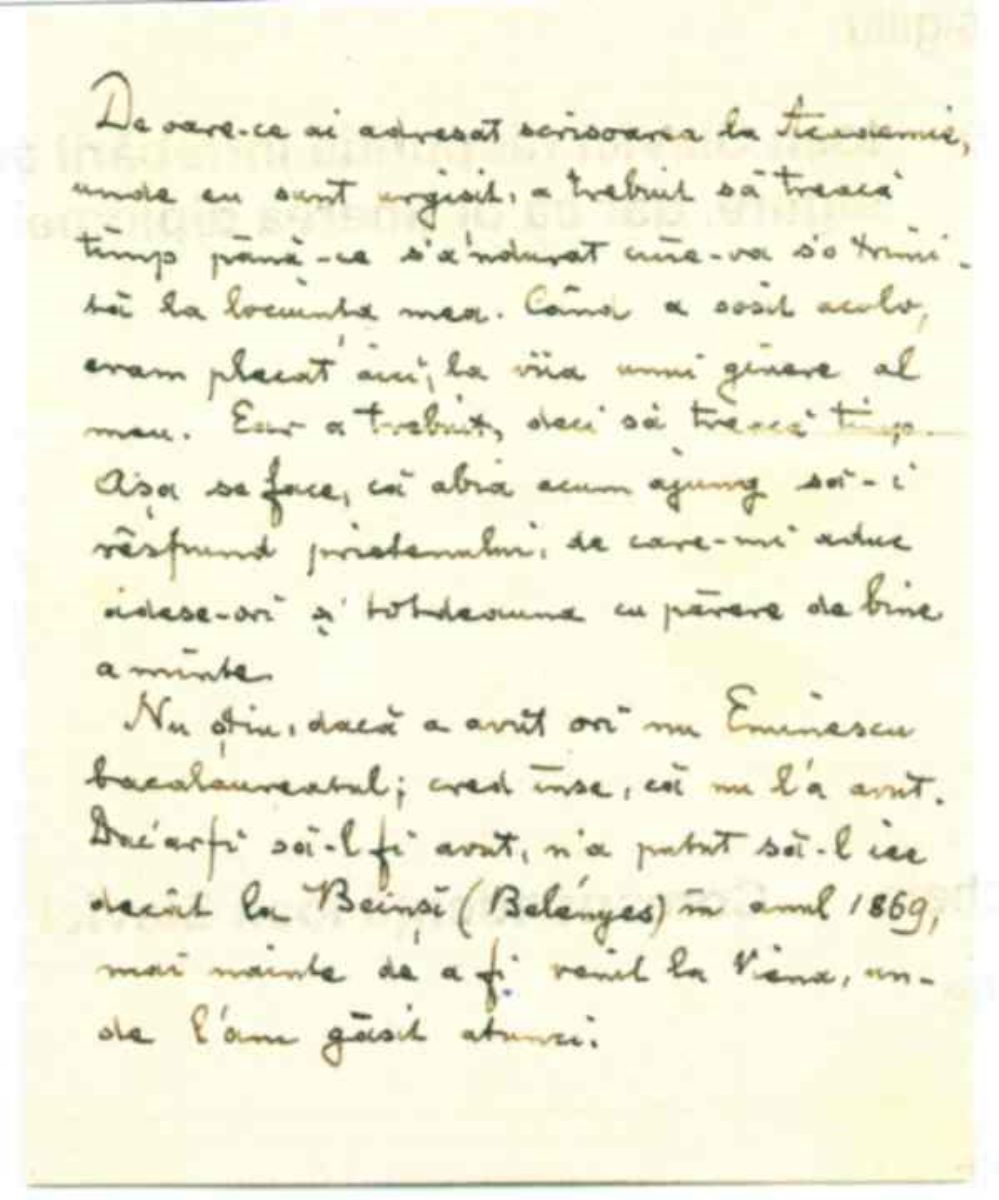 De oare-ce ai adresat scrisoarea la Academie,
unde eu sunt urgisit, a trebuit să treacă
timp până-ce s'a'ndurat cine-va s'o trimi-
tă la locuința mea. Când a sosit acolo,
eram plecat aici, la viia unui ginere al
meu. Ear a trebuit, deci să treacă timp.
Așa se face, că abia acum ajung să-i
rĕspund prietenului, de care-mi aduc
adese-ori și totdeauna cu părere de bine
aminte.
Nu știu, dacă a avut ori nu Eminescu
bacalaureatul; cred înse, că nu l'a avut.
Dac'ar fi să-l fi avut, n'a putut să-l iee
decât la Beinși (Belényes) în anul 1869,
mai nainte de a fi venit la Viena, un-
de l'am găsit atunci.